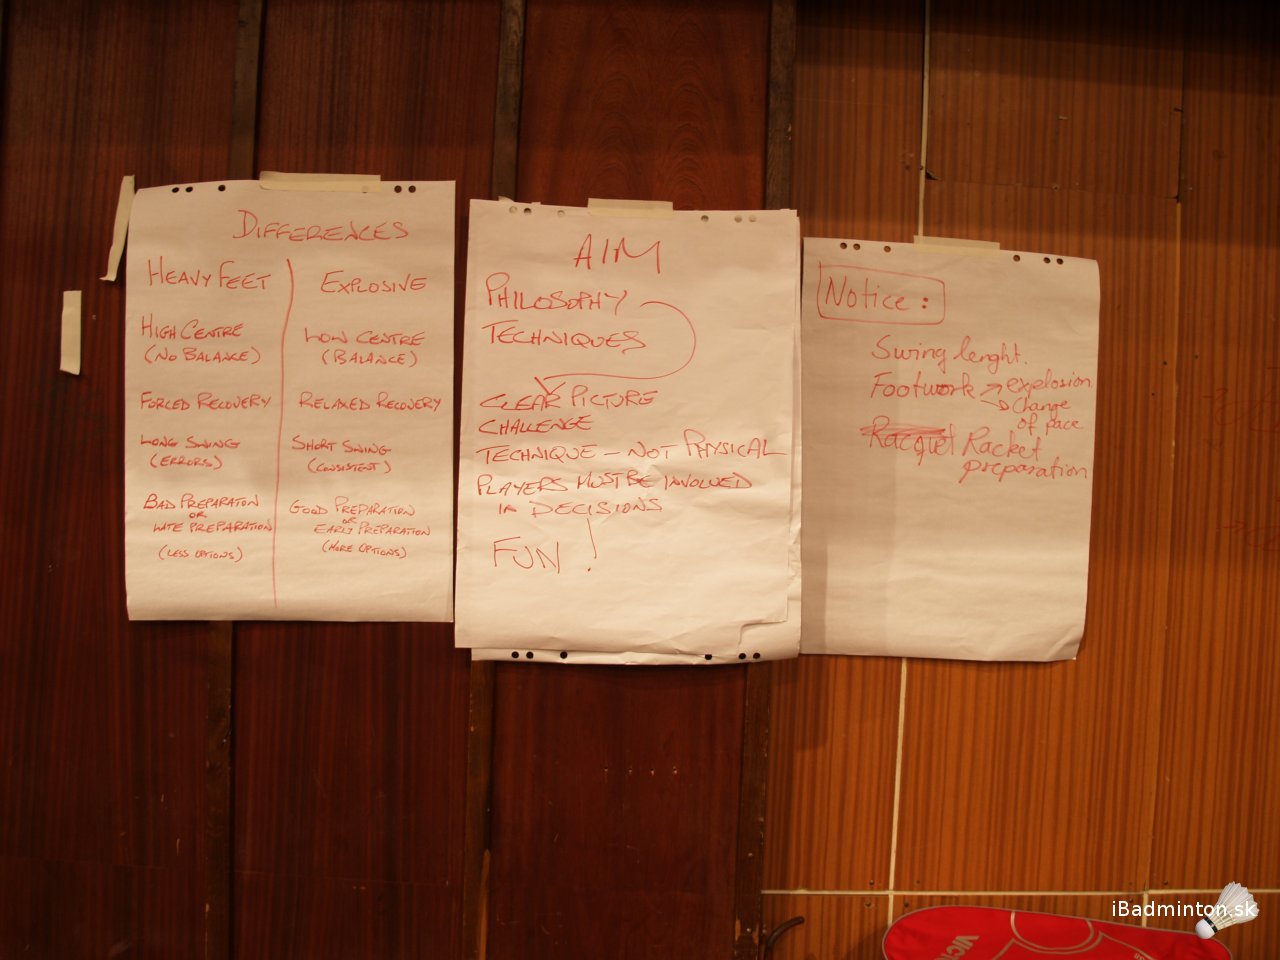 DIFFERENCES
HEAVY FEET
HIGH CENTRE
(NO BALANCE)
FORCED RECOVERY
LONG SWING
(ERRORS)
BAD PREPARATON
OR
LATE PREPARATION
(LESS OPTIONS)
EXPLOSIVE
LOW CENTRE
(BALANCE)
RELAXED RECOVERY
SHORT SWING
(CONSISTENT)
GOOD PREPARATION
OR
EARLY PREPARATION
(MORE OPTIONS)
AIM
PHILOSOPHY
TECHNIQUES
CLEAR PICTURE
CHALLENGE
TECHNIQUE – NOT PHYSICAL
PLAYERS MUST BE INVOLVED
IN DECISIONS
FUN !
Notice :
Swing lenght.
Footwork → explosion
→ change
of pace
Racquet Racket
preparation
iBadminton.sk